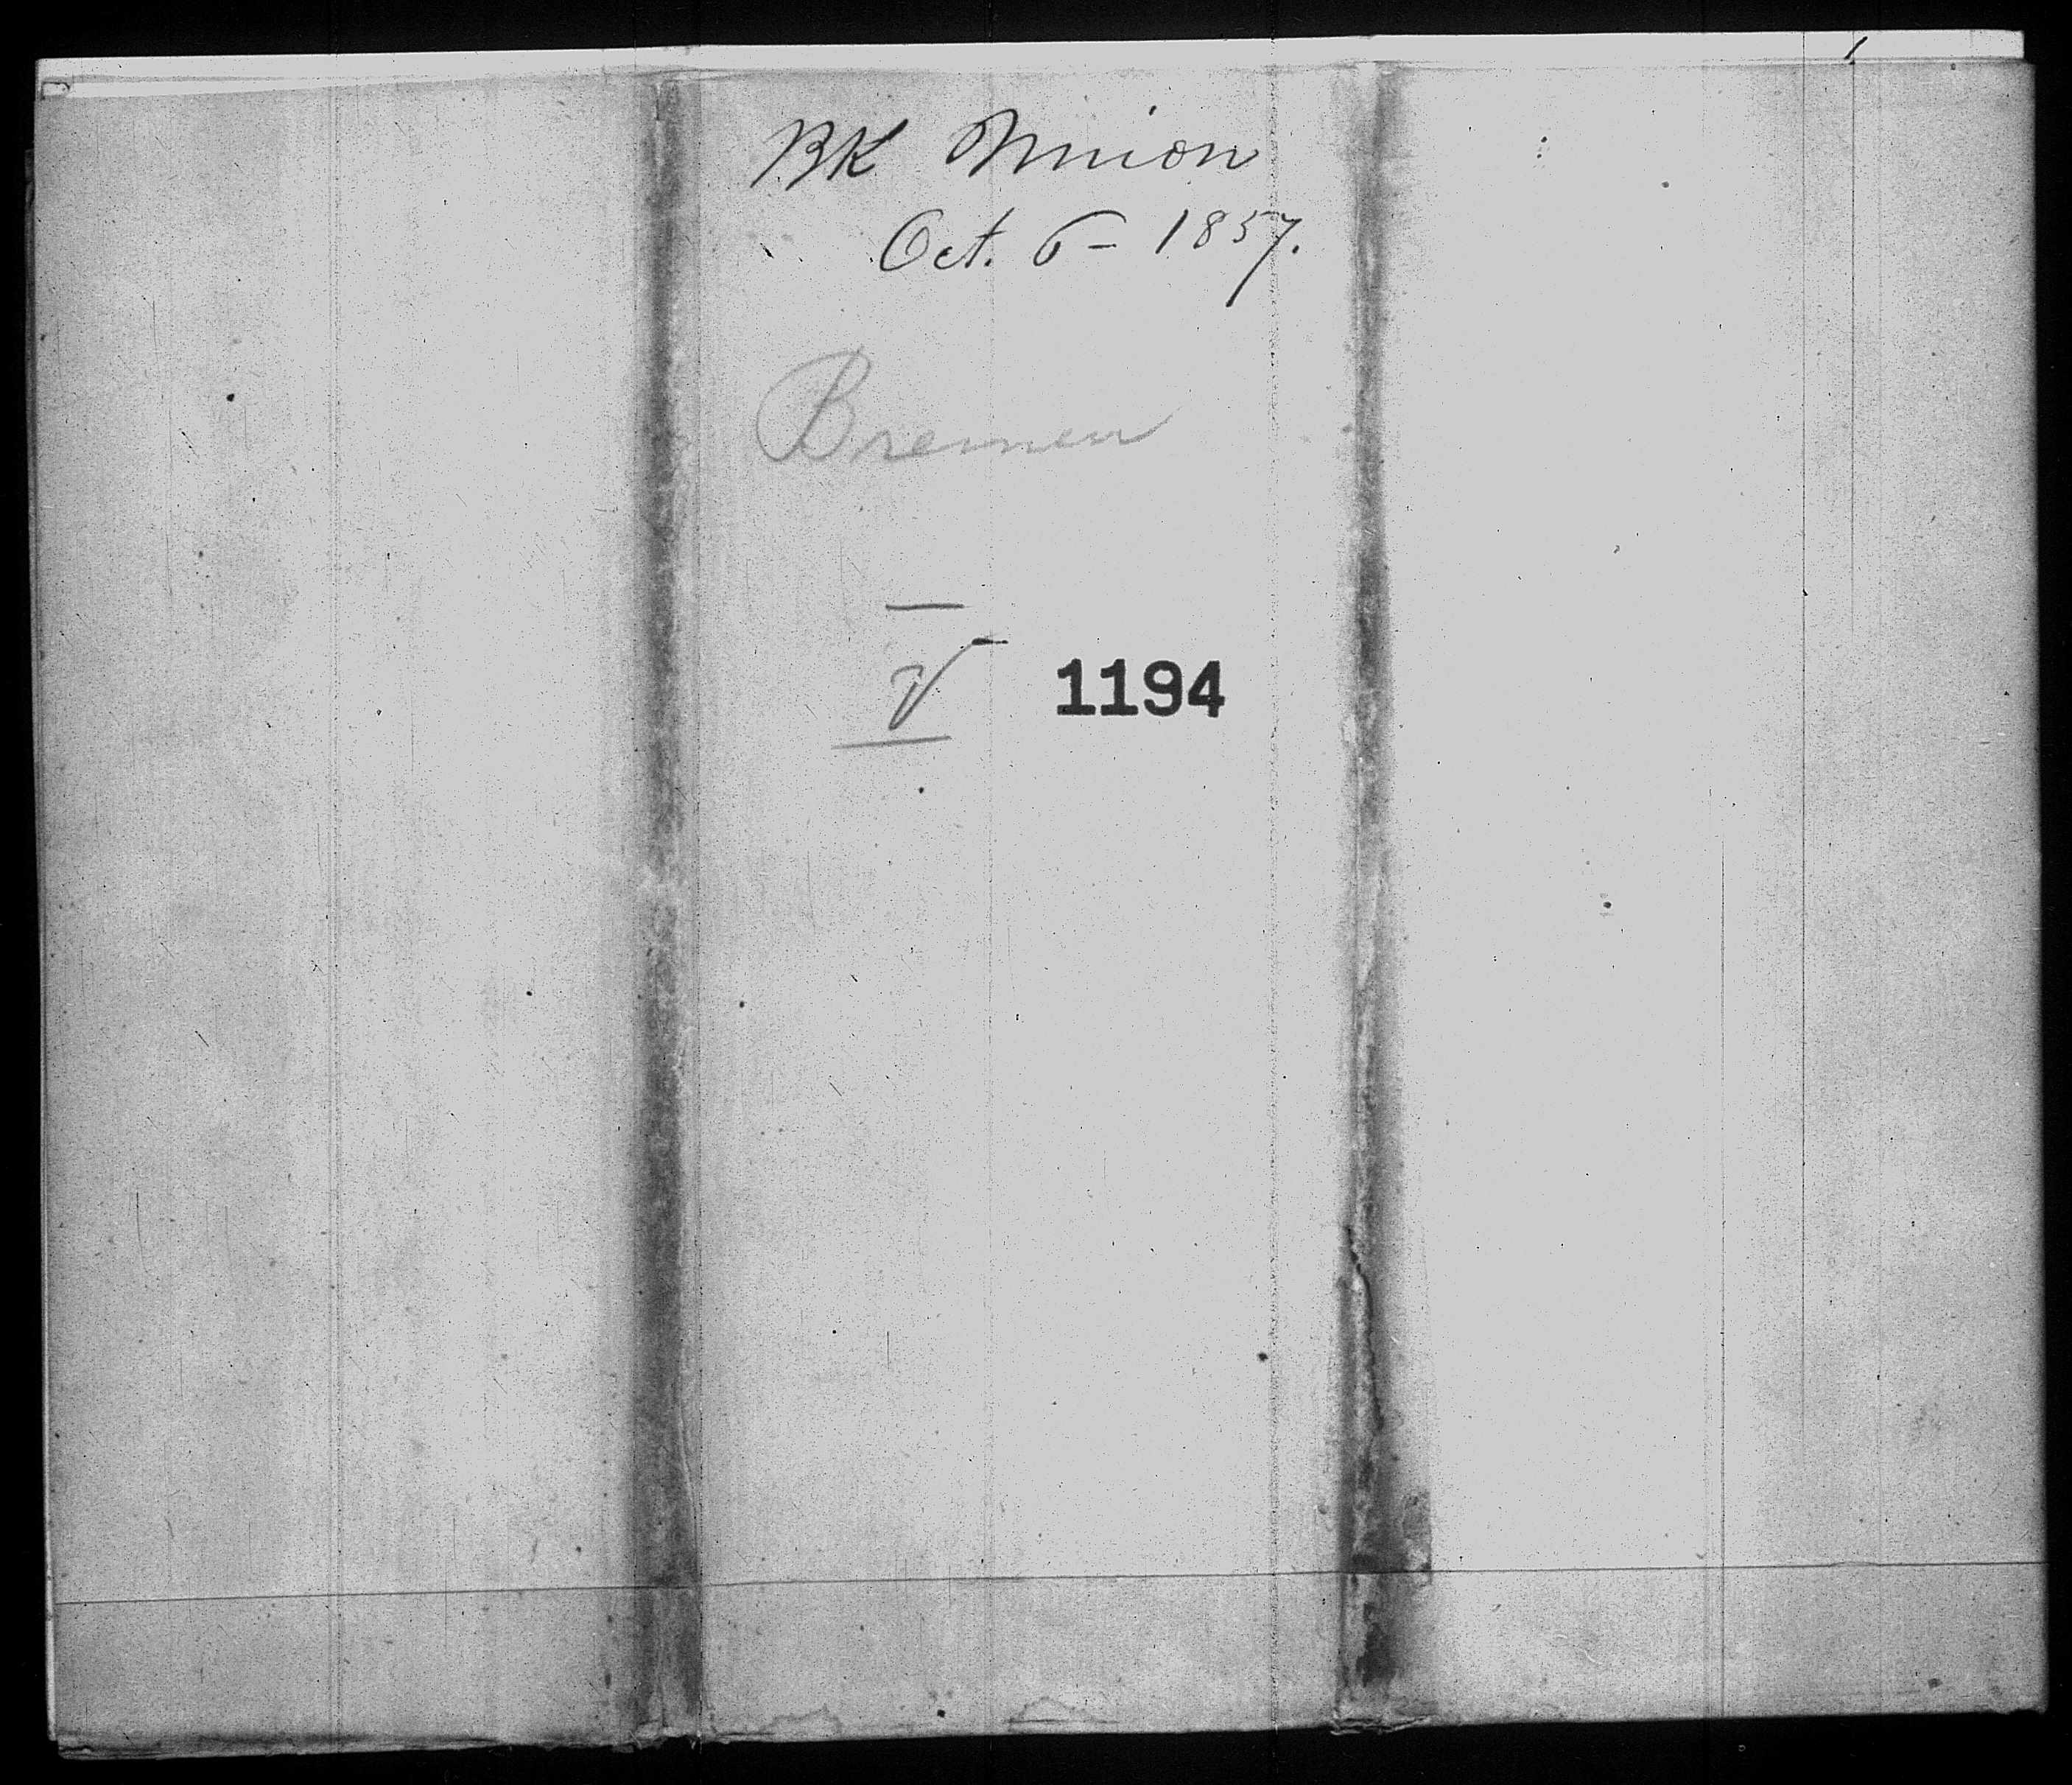 BK Union
Oct. 6 - 1857.
Bremen
V 1194